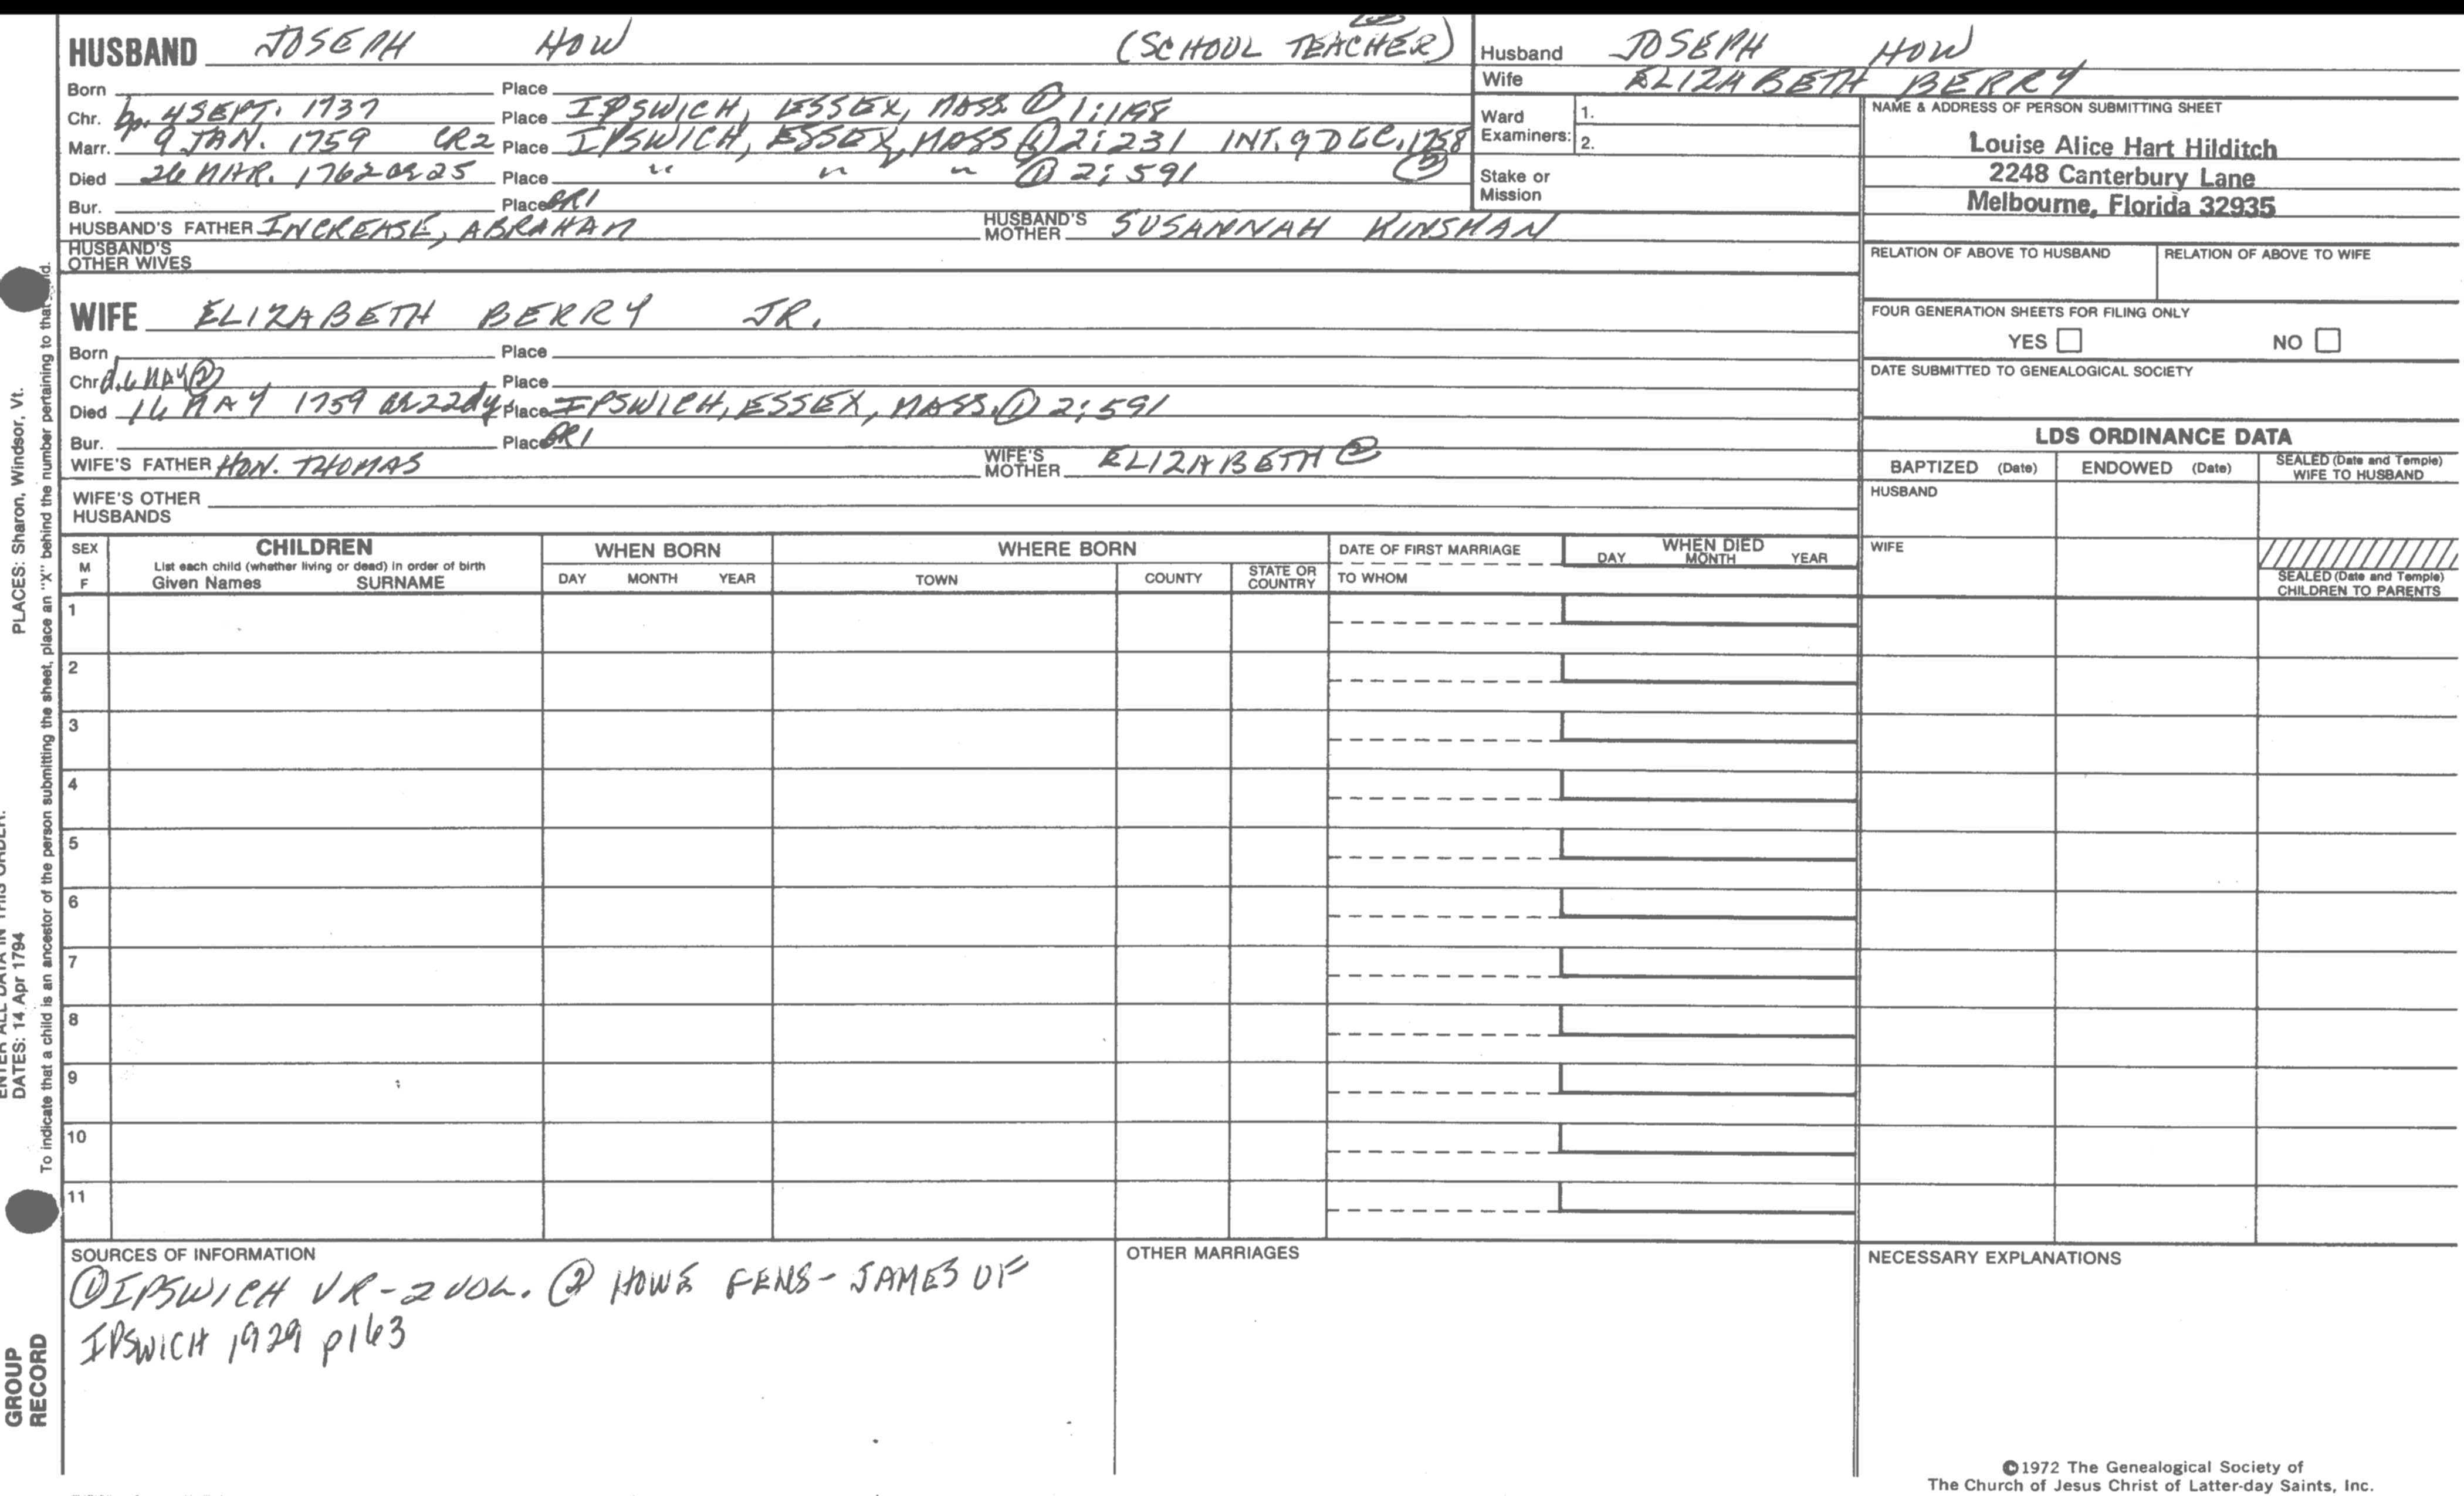 HUSBAND JOSEPH HOW (SCHOOL TEACHER)
Born Place
Chr. bp. 4 SEPT. 1737 Place IPSWICH, ESSEX, MASS. ① 1:198
Marr. 9 JAN. 1759 CR2 Place IPSWICH, ESSEX, MASS ① 2:231 INT. 9 DEC. 1758
Died 26 MAR. 1762 ae 25 Place " " " ① 2:591 ②
Bur. Place GR1
HUSBAND'S FATHER INCREASE, ABRAHAM HUSBAND'S MOTHER SUSANNAH KINSMAN
HUSBAND'S OTHER WIVES
WIFE ELIZABETH BERRY JR.
Born Place
Chr. d. 6 MAY ② Place
Died 16 MAY 1759 ae 22 dy Place IPSWICH, ESSEX, MASS. ① 2:591
Bur. Place GR1
WIFE'S FATHER HON. THOMAS WIFE'S MOTHER ELIZABETH ②
WIFE'S OTHER HUSBANDS
Husband JOSEPH HOW
Wife ELIZABETH BERRY
Ward Examiners: 1.
2.
Stake or Mission
NAME & ADDRESS OF PERSON SUBMITTING SHEET
Louise Alice Hart Hilditch
2248 Canterbury Lane
Melbourne, Florida 32935
RELATION OF ABOVE TO HUSBAND RELATION OF ABOVE TO WIFE
FOUR GENERATION SHEETS FOR FILING ONLY
YES NO
DATE SUBMITTED TO GENEALOGICAL SOCIETY
LDS ORDINANCE DATA
BAPTIZED (Date) ENDOWED (Date) SEALED (Date and Temple) WIFE TO HUSBAND
HUSBAND
WIFE
SEALED (Date and Temple) CHILDREN TO PARENTS
SEX M F CHILDREN WHEN BORN WHERE BORN DATE OF FIRST MARRIAGE WHEN DIED
List each child (whether living or dead) in order of birth
Given Names SURNAME DAY MONTH YEAR TOWN COUNTY STATE OR COUNTRY TO WHOM DAY MONTH YEAR
1
2
3
4
5
6
7
8
9
10
11
SOURCES OF INFORMATION
① IPSWICH VR-2 VOL. ② HOWE GENS-JAMES OF
IPSWICH 1929 p163
OTHER MARRIAGES
NECESSARY EXPLANATIONS
©1972 The Genealogical Society of
The Church of Jesus Christ of Latter-day Saints, Inc.
PLACES: Sharon, Windsor, Vt.
DATES: 14 Apr 1794
To indicate that a child is an ancestor of the person submitting the sheet, place an "X" behind the number pertaining to that
GROUP
RECORD